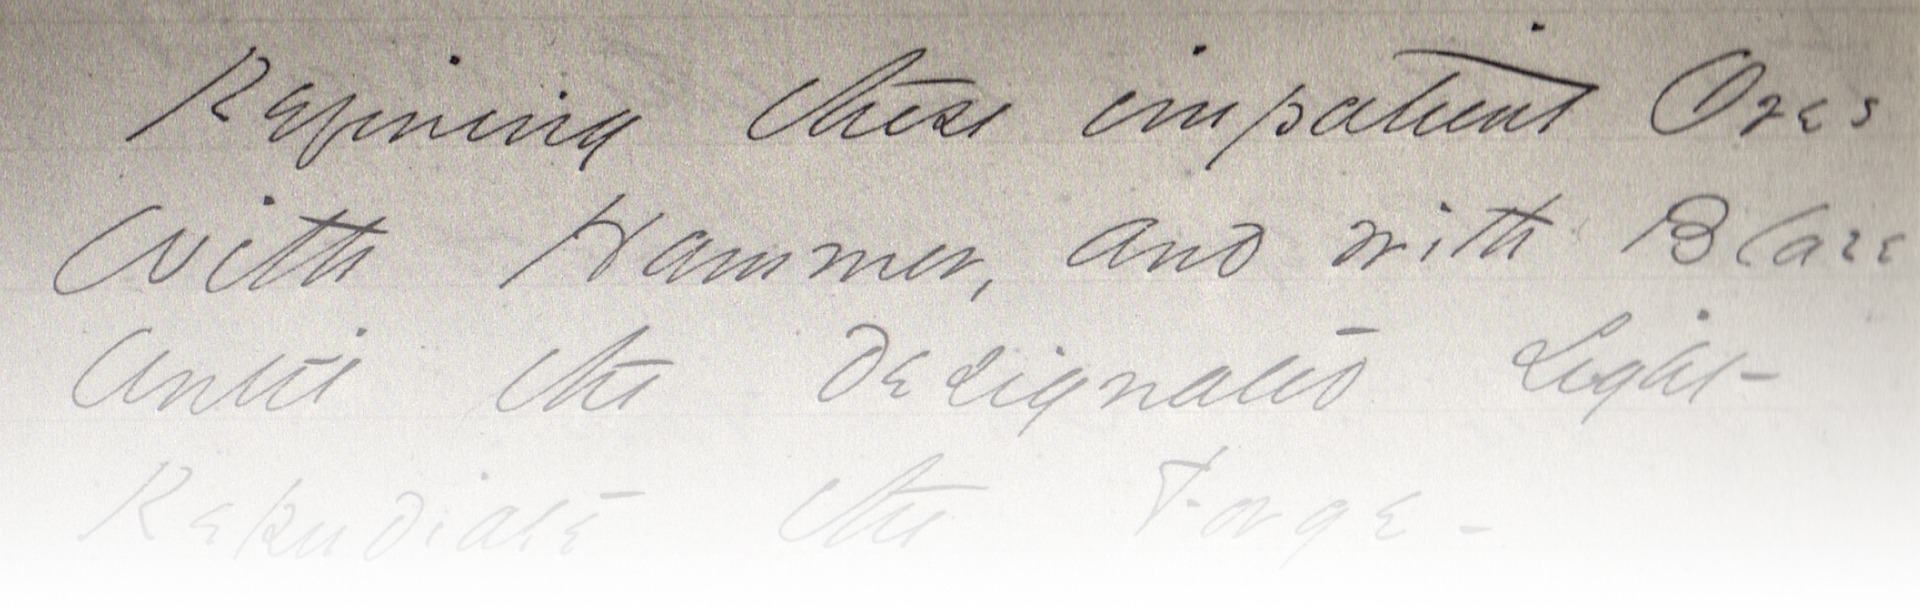 Refining these impatient Ores
With Hammer, and with Blaze
Until the Designated Light-
Repudiate the Forge-